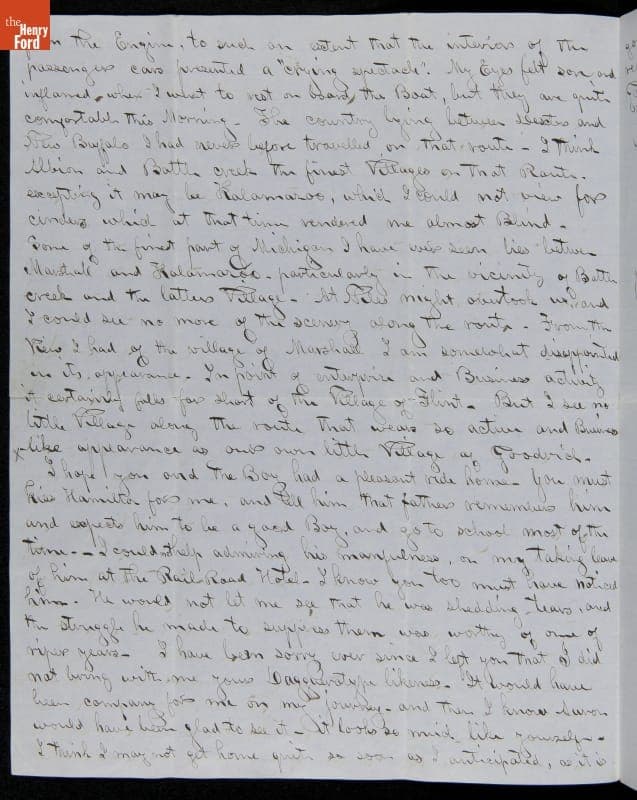 the
Henry
Ford
from the Engine, to such an extent that the interior of the
passenger cars presented a "crying spectacle". My Eyes felt sore, and
inflamed, when I went to rest on board the Boat, but they are quite
comfortable this Morning - The country lying between and
New Buffalo I had never before travelled on that route - I think
Albion and Battle creek the finest Villages on that Route.
excepting it may be Kalamazoo, which I could not view for
cinders which at that time rendered me almost Blind -
Some of the finest part of Michigan I have ever seen lies between
Marshall and Kalamazoo - particularly in the vicinity of Battle
creek and the latter Village - At Niles night overtook us, and
I could see no more of the scenery along the route - From the
View I had of the village of Marshall I am somewhat disappointed
in its appearance - In point of enterprise and Business activity
it certainly falls far short of the Village of Flint - But I see no
little Village along the route that wears so active and Business
like appearance as our own little Village of Goodrich -
I hope you and the Boy had a pleasant ride home - You must
kiss Hamilton for me, and tell him that father remembers him
and expects him to be a good Boy, and go to school most of the
time - - I could not help admiring his manfulness, on my taking leave
of him at the Rail Road Hotel - I know you too must have noticed
him - He would not let me see that he was shedding tears, and
the struggle he made to suppress them was worthy of one of
riper years - I have been sorry ever since I left you that I did
not bring with me your Daguereotype likeness - It would have
been company for me on my journey - and then I know
would have been glad to see it - It looks so much like yourself -
I think I may not get home quite so soon as I anticipated, as it is